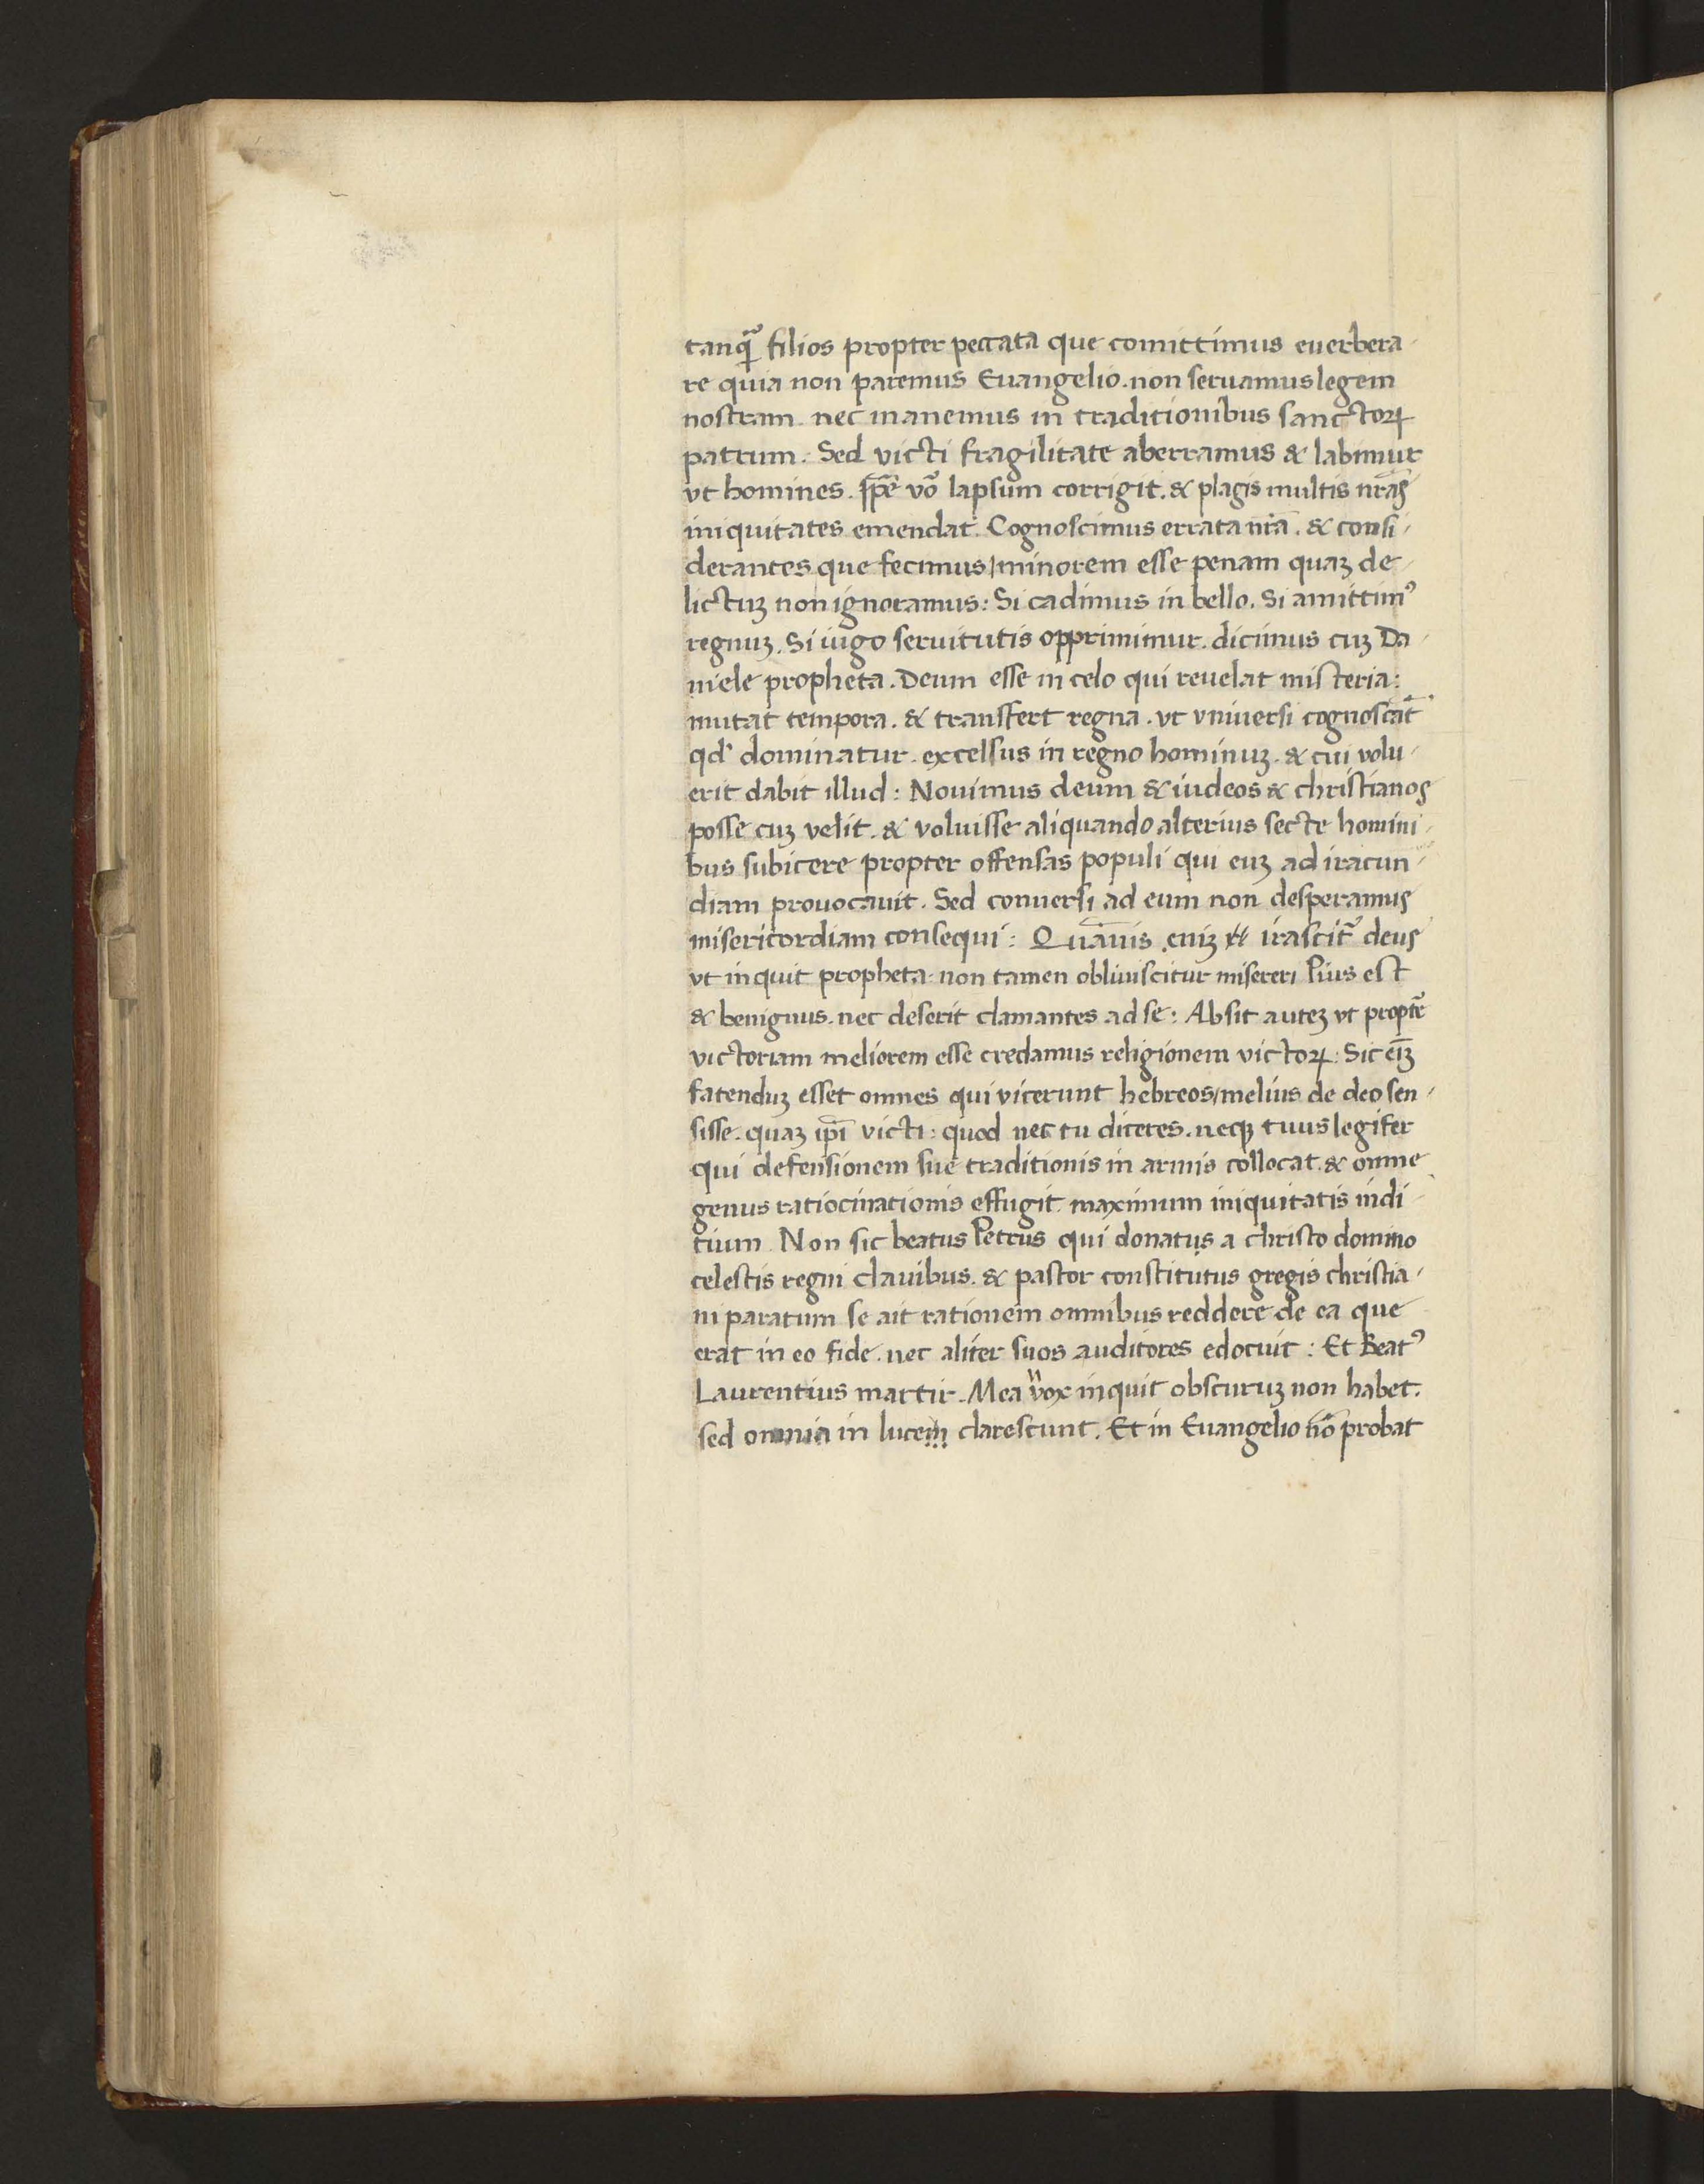 tanqȝ filios propter peccata que comittimus euerbera-
re quia non paremus Euangelio. non seruamus legem
nostram. nec manemus in traditionibus sanctoꝝ
patrum. Sed victi fragilitate aberramus & labimur
vt homines. vō lapsum corrigit. & plagis multis nr̄as
iniquitates emendat. Cognoscimus errata nr̄a. & consi-
derantes que fecimus/minorem esse penam quaꝫ de-
lictuꝫ non ignoramus: Si cadimus in bello. Si amittimꝰ
regnuꝫ. Si iugo seruitutis opprimimur. dicimus cuꝫ Da-
niele propheta. Deum esse in celo qui reuelat misteria:
mutat tempora. & transfert regna. vt vniuersi cognoscāt
qd' dominatur. excelsus in regno hominuꝫ. & cui volu-
erit dabit illud: Nouimus deum & iudeos & christianos
posse cuꝫ velit. & voluisse aliquando alterius secte homini-
bus subicere propter offensas populi qui euꝫ ad iracun-
diam prouocauit. Sed conuersi ad eum non desperamus
misericordiam consequi: Quāuis eniꝫ irascit̉ deus
vt inquit propheta. non tamen obliuiscitur misereri Pius est
& benignus. nec deserit clamantes ad se: Absit auteꝫ vt propt̄
victoriam meliorem esse credamus religionem victoꝝ: Sic eīꝫ
fatenduꝫ esset omnes qui vicerunt hebreos/melius de deo sen-
sisse. quaꝫ ip̄i victi: quod nec tu diceres. neqꝫ tuus legifer
qui defensionem sue traditionis in armis collocat. & omne
genus ratiocinationis effugit. maximum iniquitatis indi-
tium. Non sic beatus Petrus qui donatus a christo domino
celestis regni clauibus. & pastor constitutus gregis christia-
ni paratum se ait rationem omnibus reddere de ea que
erat in eo fide. nec aliter suos auditores edocuit: Et Beatꝰ
Laurentius martir. Mea vox inquit obscuruꝫ non habet.
sed omnia in lucem clarescunt. Et in Euangelio nō probat